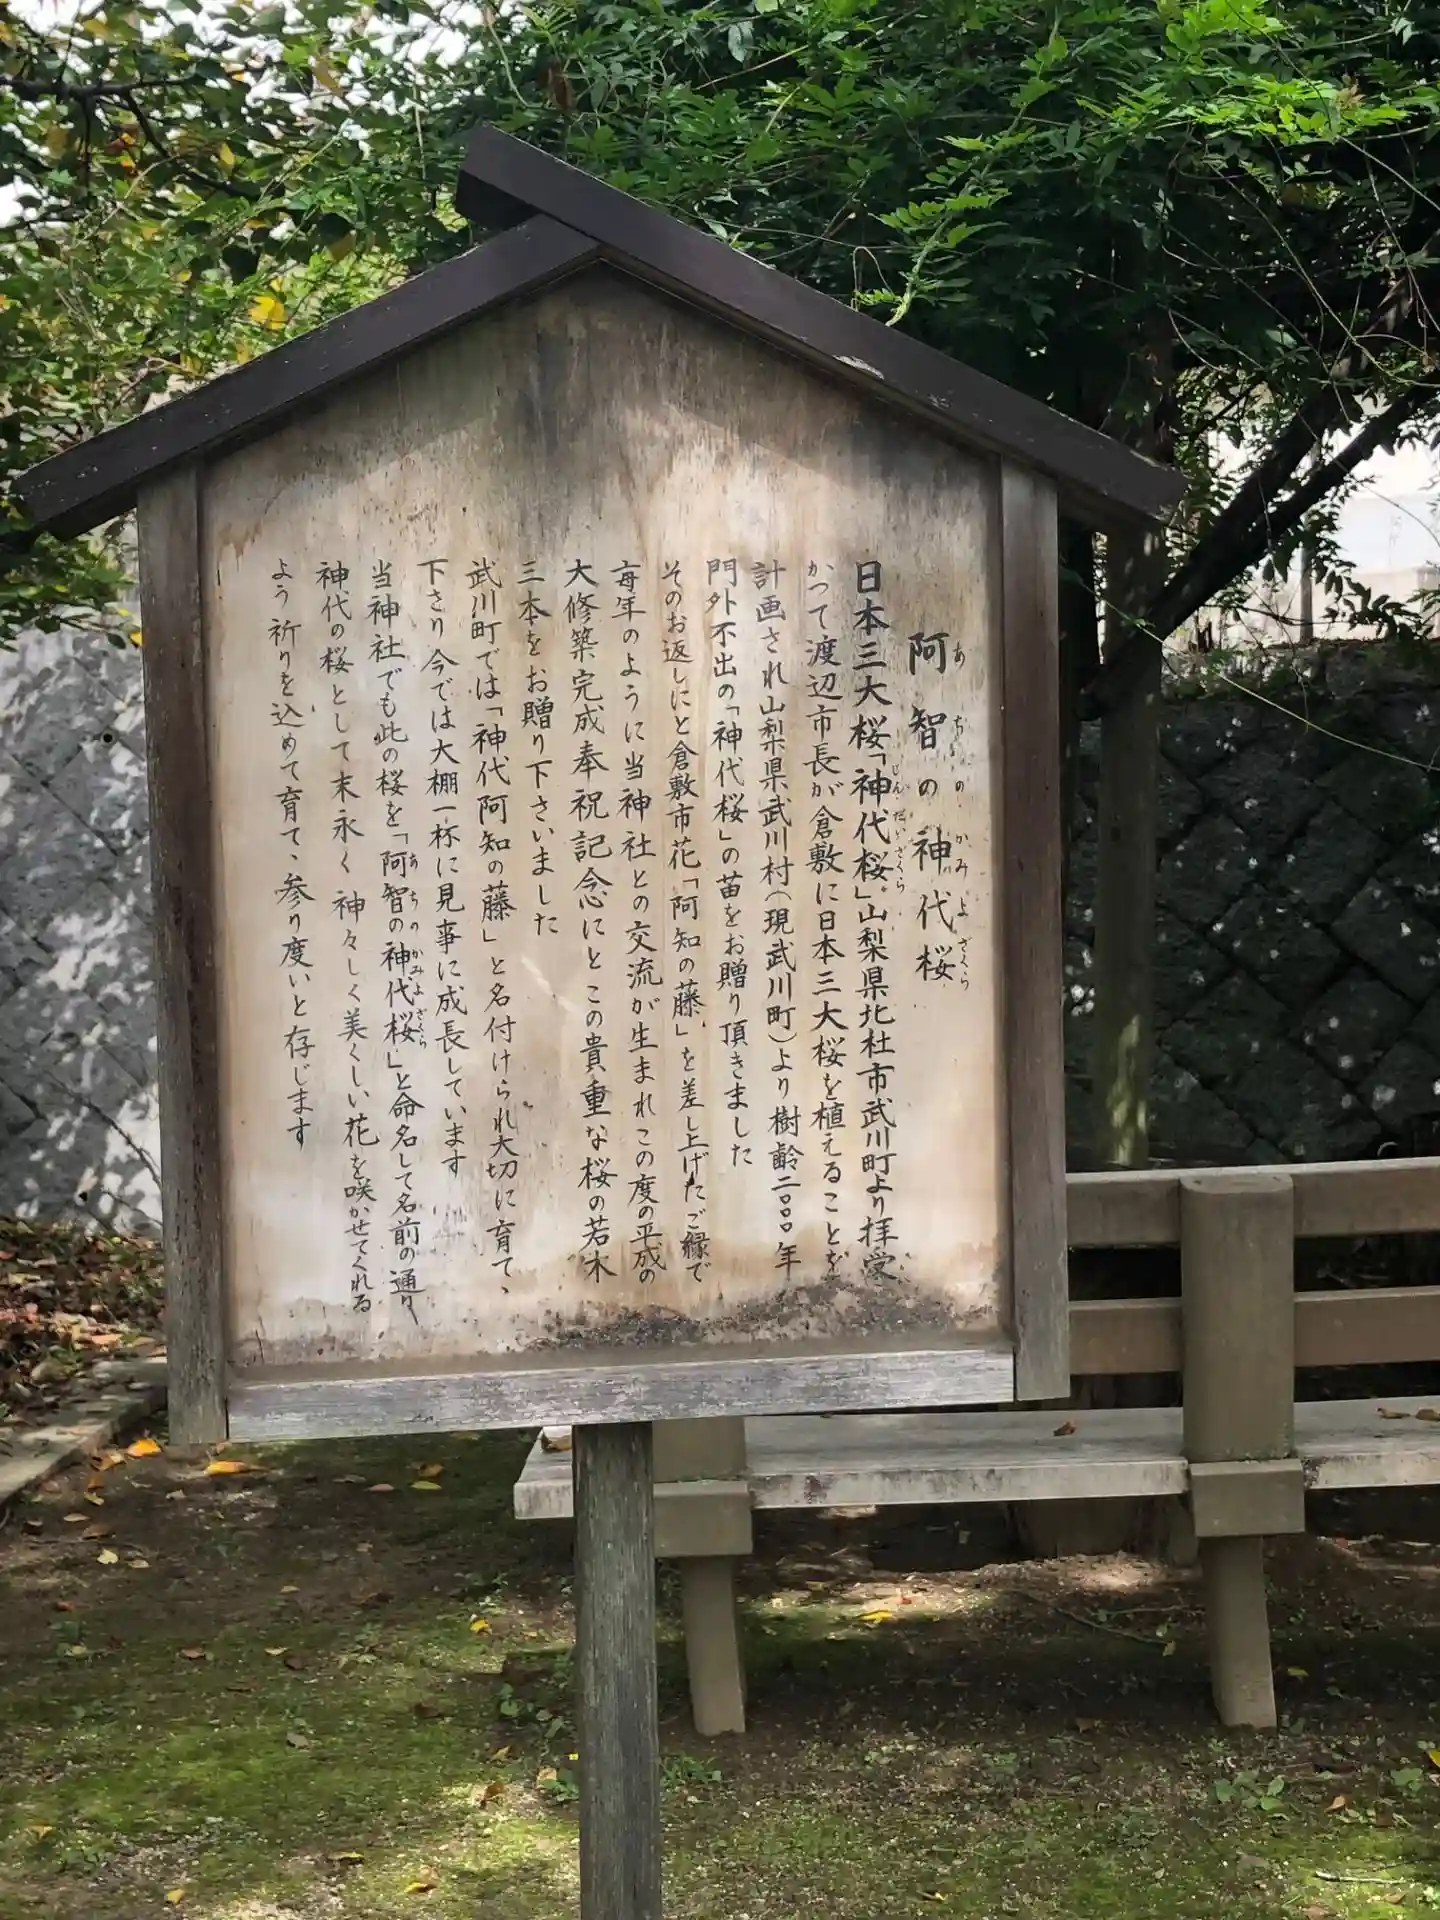 阿智の神代桜
あちのかみよざくら
日本三大桜「神代桜」山梨県北杜市武川町より拝受
じんだいざくら
かつて渡辺市長が倉敷に日本三大桜を植えることを
計画され山梨県武川村(現武川町)より樹齢二〇〇〇年
門外不出の「神代桜」の苗をお贈り頂きました
そのお返しにと倉敷市花「阿知の藤」を差し上げたご縁で
毎年のように当神社との交流が生まれこの度の平成の
大修築完成奉祝記念にとこの貴重な桜の若木
三本をお贈り下さいました
武川町では「神代阿知の藤」と名付けられ大切に育て、
下さり今では大棚一杯に見事に成長しています
当神社でも此の桜を「阿智の神代桜」と命名して名前の通り
あちのかみよざくら
神代の桜として末永く神々しく美くしい花を咲かせてくれる
よう祈りを込めて育て、参り度いと存じます